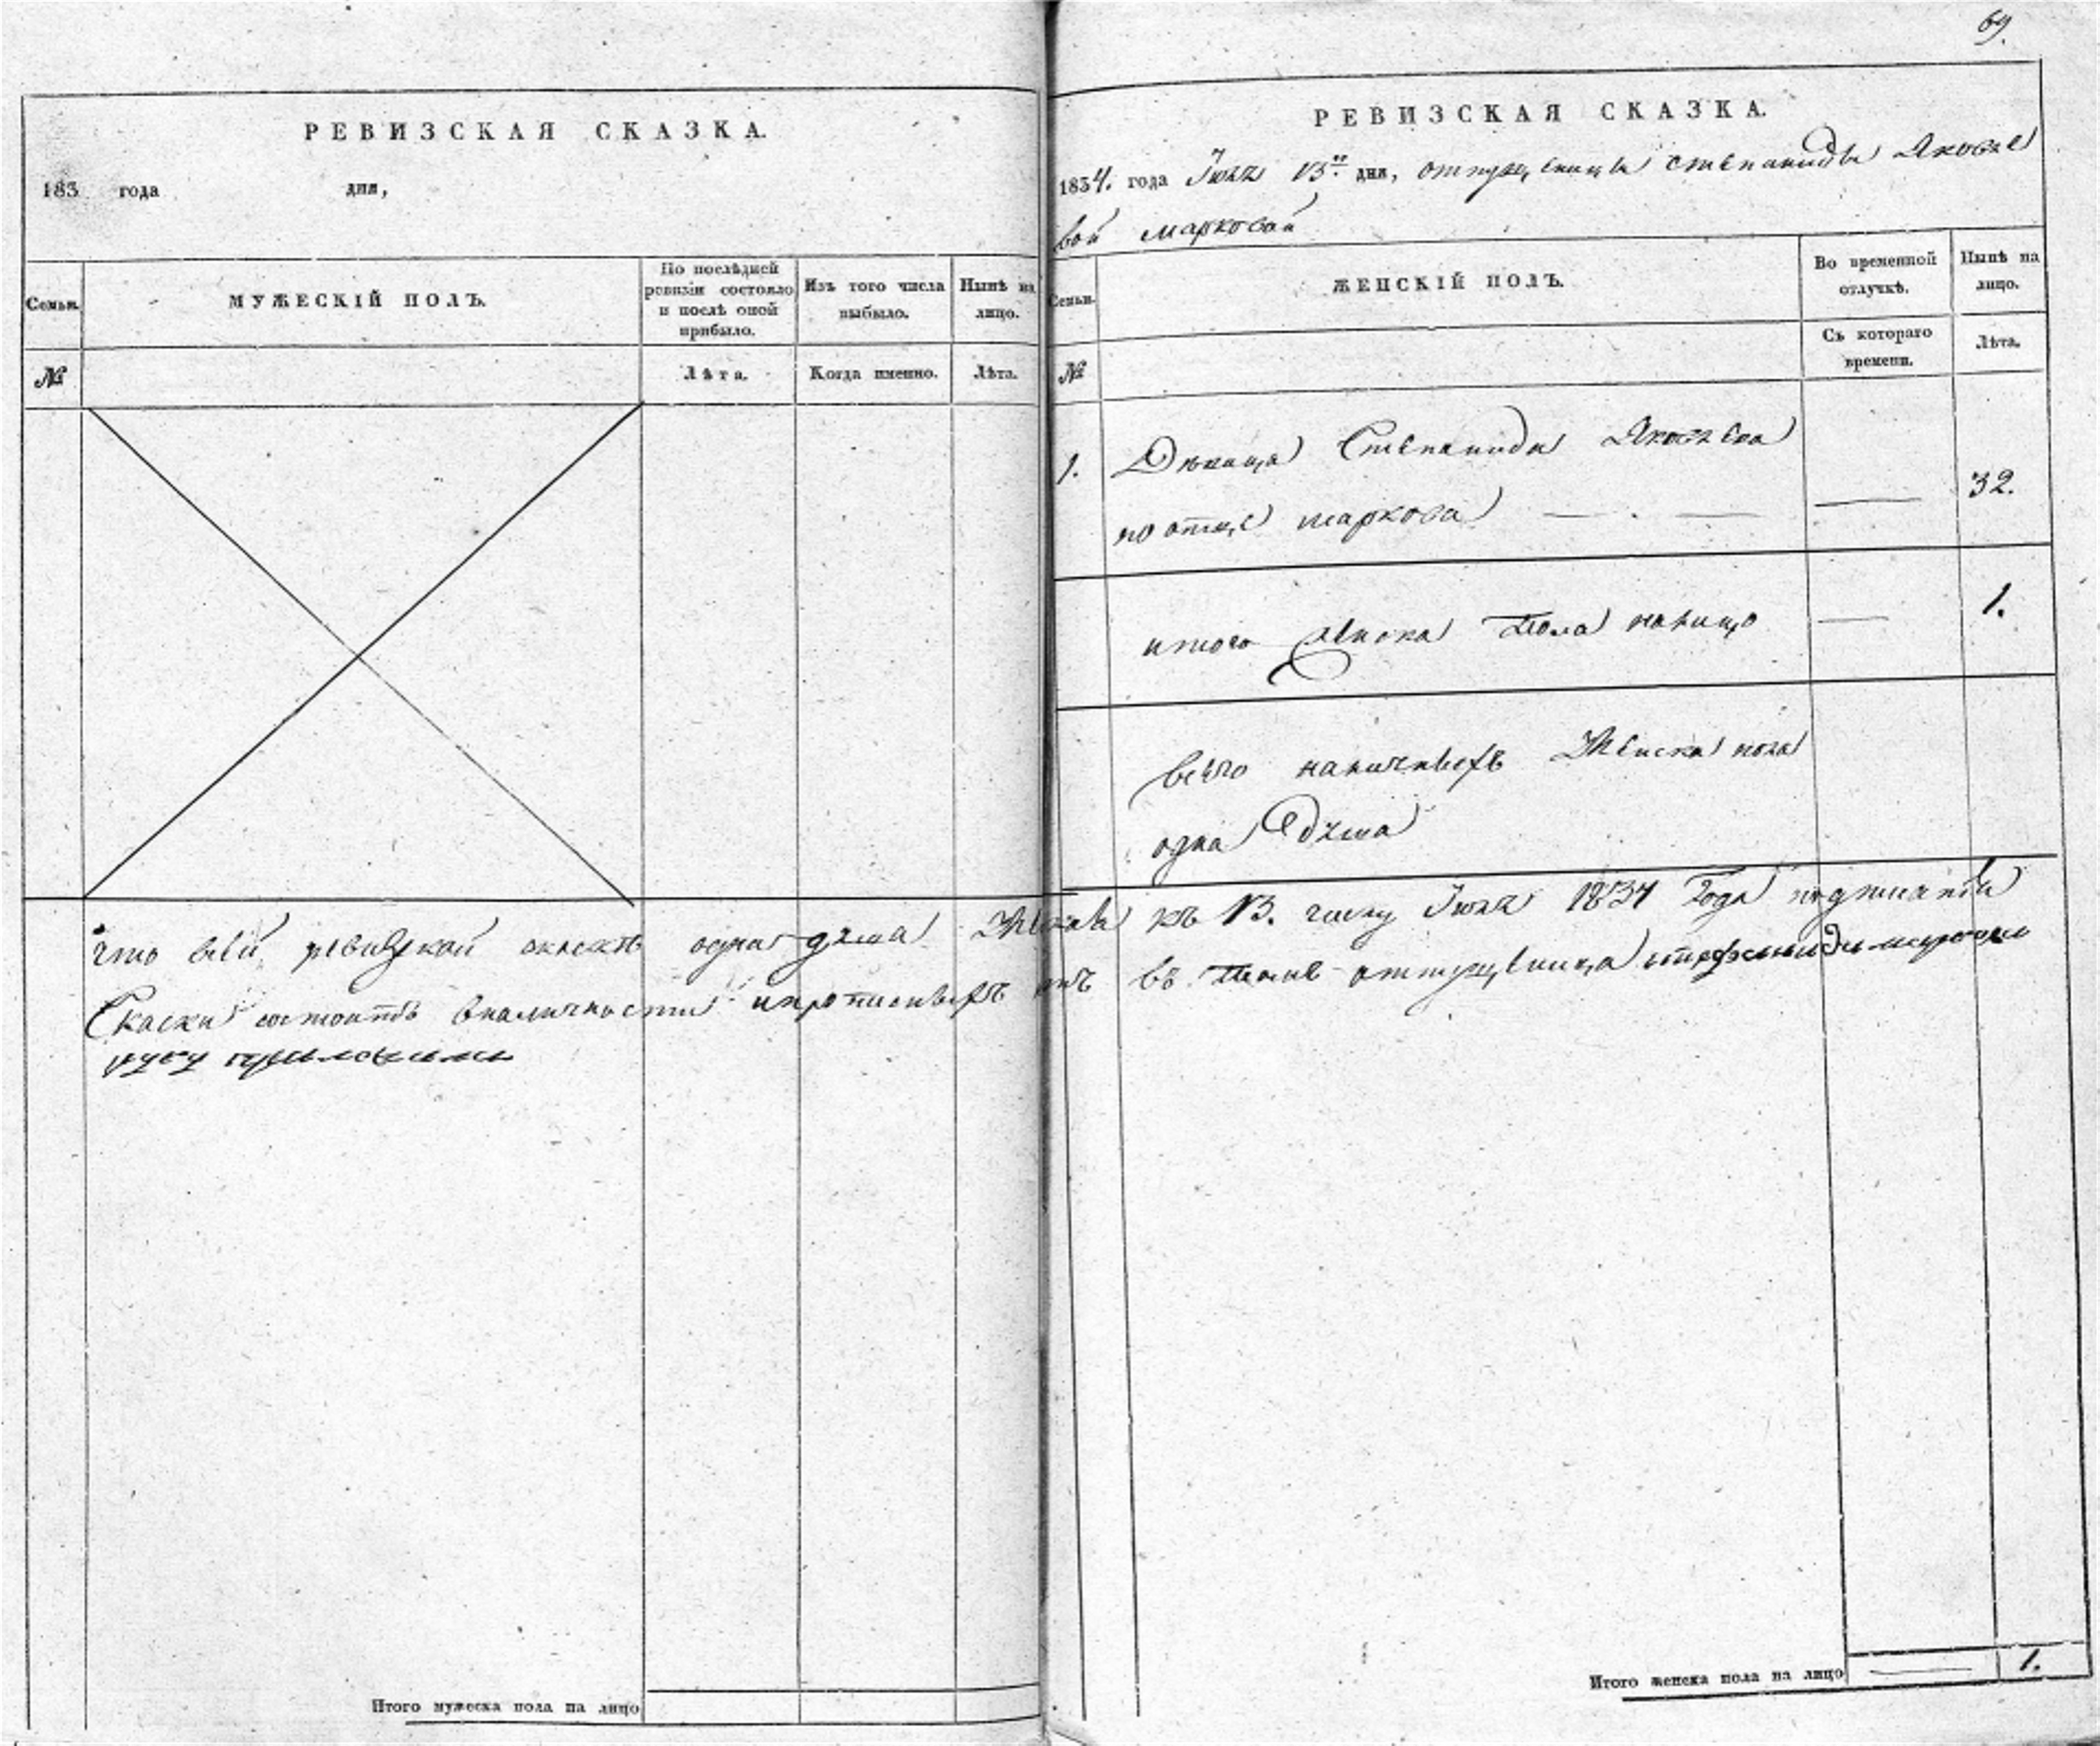 РЕВИЗСКАЯ СКАЗКА.
183 года дня,
Семьи.
МУЖЕСКІЙ ПОЛЪ.
По послѣдней ревизіи состояло и послѣ оной прибыло.
Изъ того числа выбыло.
Нынѣ на лицо.
№
Лѣта.
Когда именно.
Лѣта.
69.
РЕВИЗСКАЯ СКАЗКА.
1834. года Іюля 13го дня, отпущеницы степаниды Яковле
вой марковой
Семьи.
ЖЕНСКІЙ ПОЛЪ.
Во временной отлучкѣ.
Нынѣ на лицо.
№
Съ котораго времени.
Лѣта.
1. Дѣвица Степанида Яковлева
по отце маркова — . — — 32.
итого женска Пола налицо — 1.
всего наличныхъ Женска пола
одна Душа
что въ сей ревизкой скаске одна душа Женска къ 13. числу Іюля 1834 Года
Скаски состоитъ вналичности въ томъ отпущеница
руку приложили
Итого мужеска пола на лицо
Итого женска пола на лицо — 1.